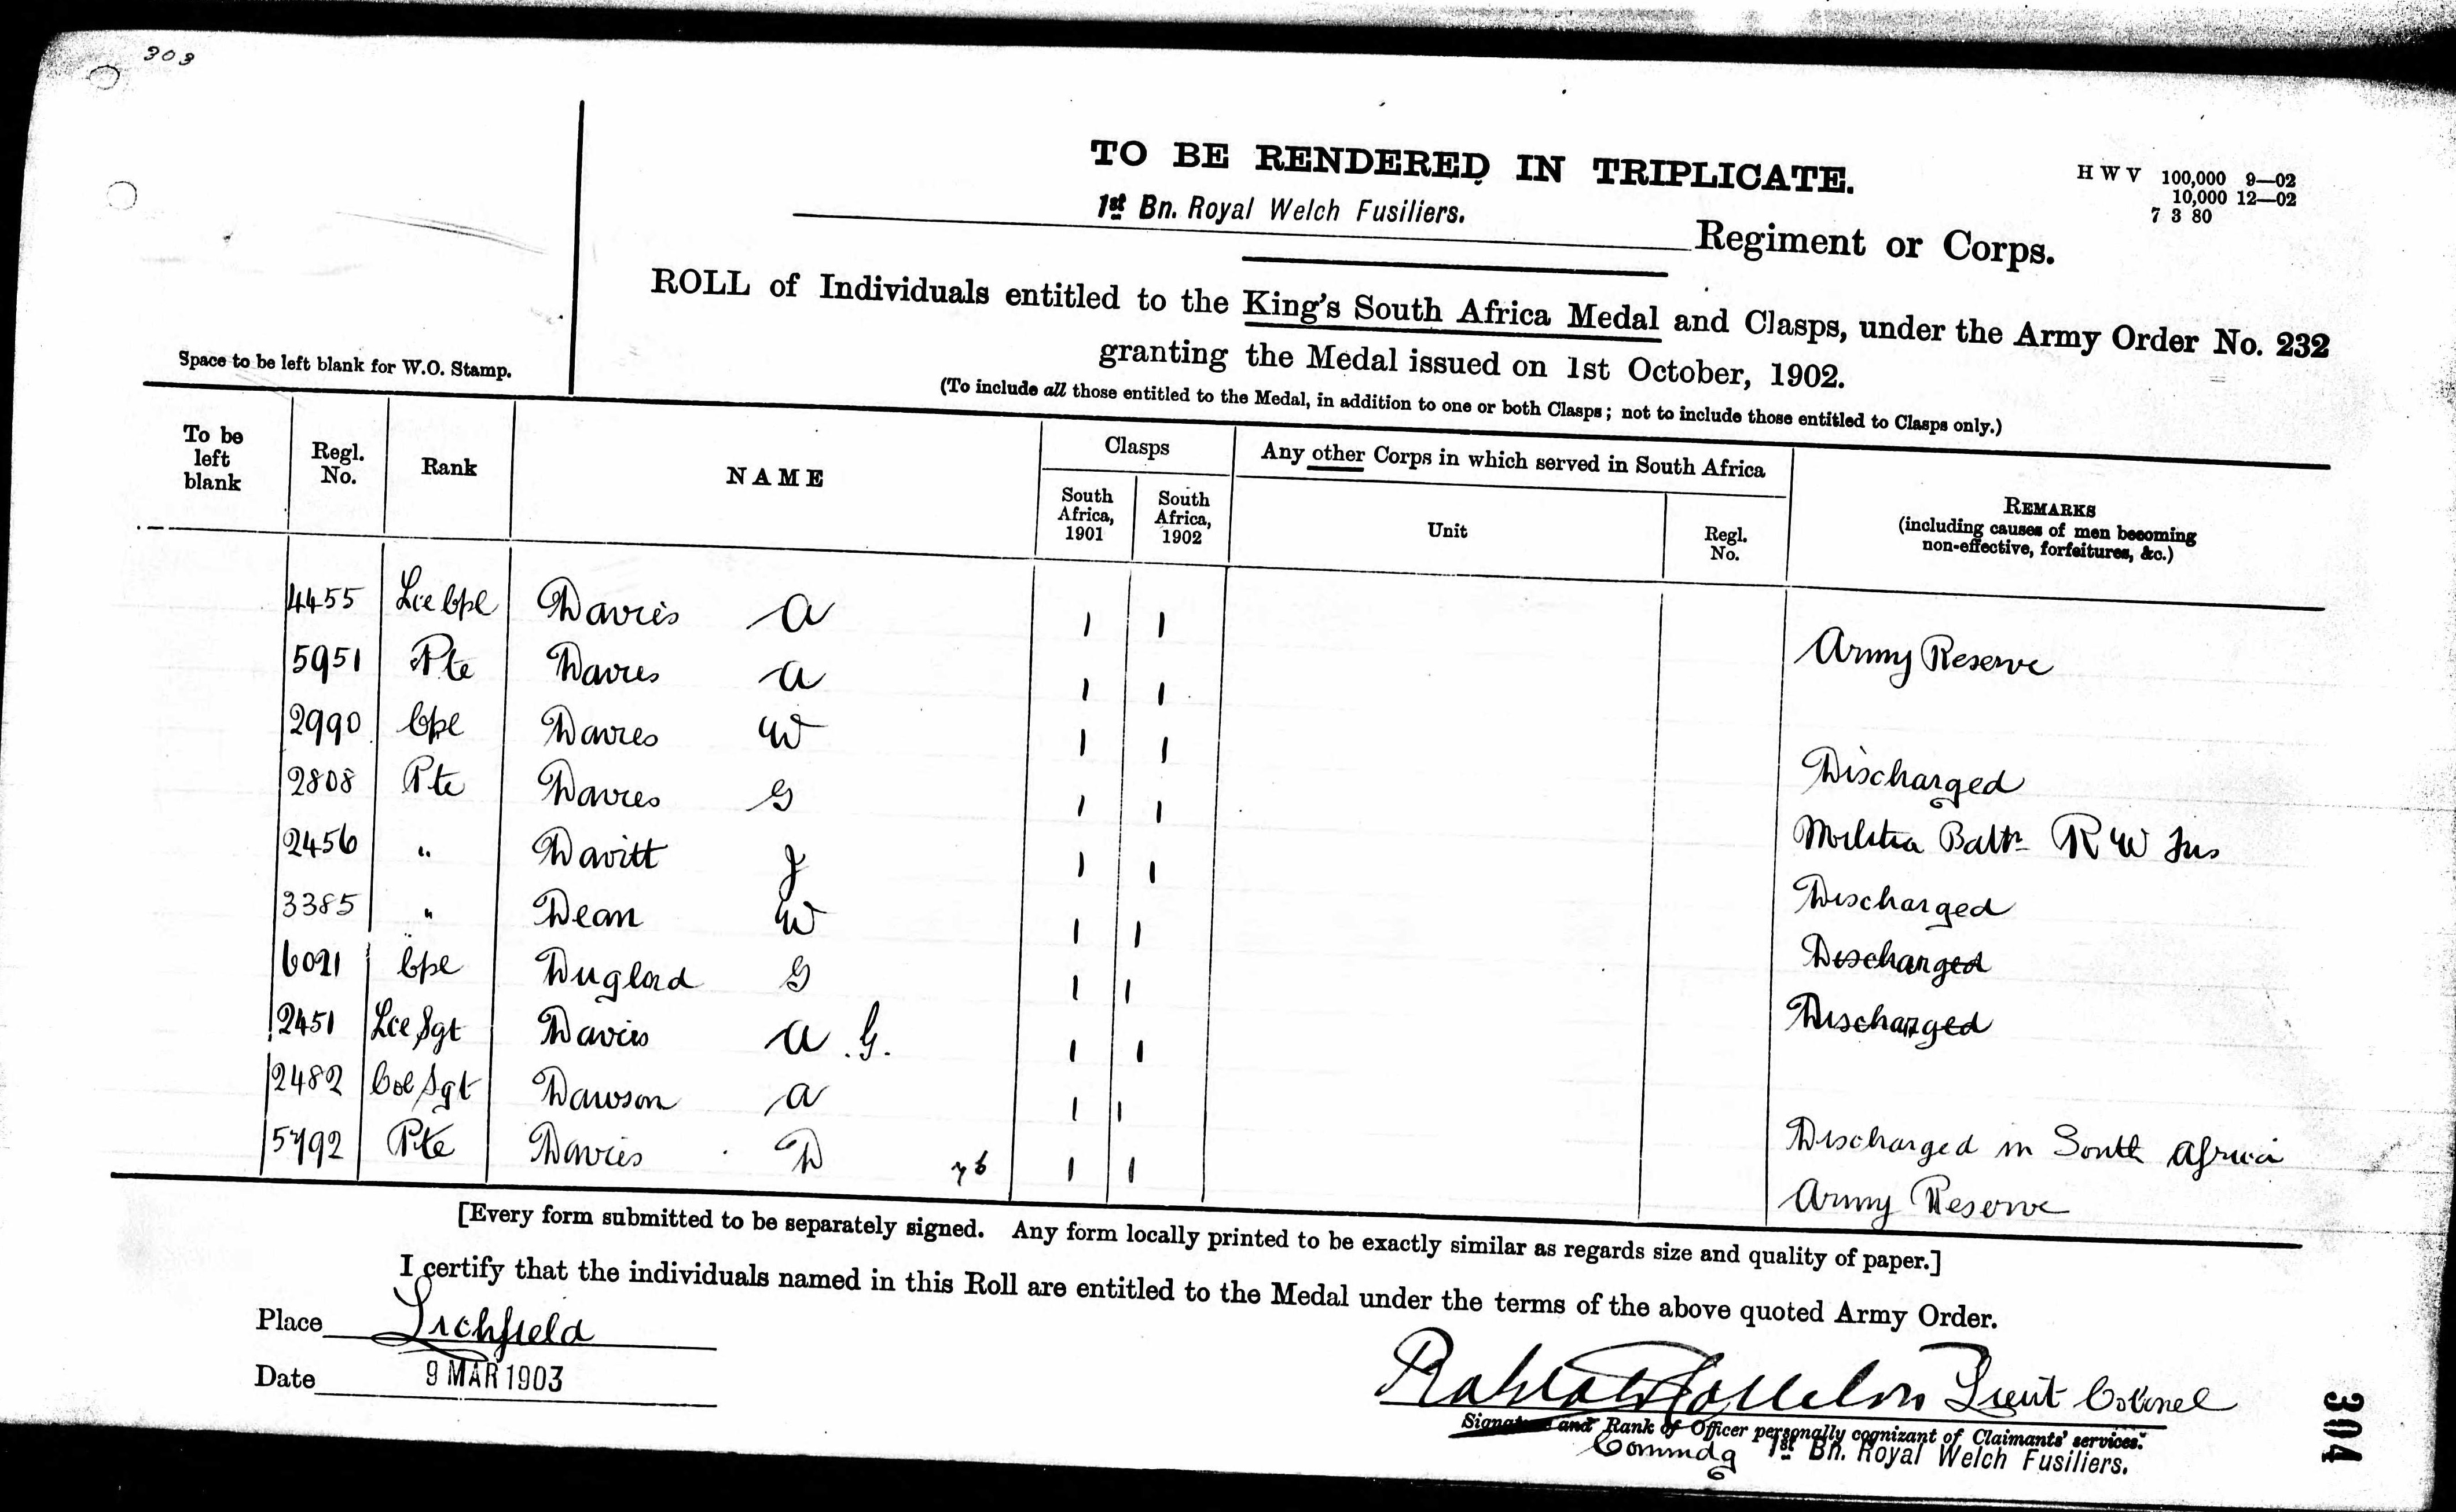 303
TO BE RENDERED IN TRIPLICATE.
H W V 100,000 9—02
10,000 12—02
7 3 80
1st Bn. Royal Welch Fusiliers.
Regiment or Corps.
ROLL of Individuals entitled to the King's South Africa Medal and Clasps, under the Army Order No. 232
granting the Medal issued on 1st October, 1902.
Space to be left blank for W.O. Stamp.
(To include all those entitled to the Medal, in addition to one or both Clasps; not to include those entitled to Clasps only.)
To be left blank
Regl. No.
Rank
NAME
Clasps
South Africa, 1901
South Africa, 1902
Any other Corps in which served in South Africa
Unit
Regl. No.
REMARKS
(including causes of men becoming
non-effective, forfeitures, &c.)
4455 Lce Cpl Davies A 1 1 Army Reserve
5951 Pte Davies A 1 1
2990 Cpl Davies W 1 1 Discharged
2808 Pte Davies G 1 1 Militia Battn R W Fus
2456 " Davitt J 1 1 Discharged
3385 " Dean W 1 1 Discharged
6021 Cpl Duglord G 1 1 Discharged
2451 Lce Sgt Davies A .G. 1 1
2482 Col Sgt Dawson A 1 1 Discharged in South Africa
5792 Pte Davies D 1 1 Army Reserve
[Every form submitted to be separately signed. Any form locally printed to be exactly similar as regards size and quality of paper.]
I certify that the individuals named in this Roll are entitled to the Medal under the terms of the above quoted Army Order.
Place Lichfield
Date 9 MAR 1903
Lieut Colonel
Signature and Rank of Officer personally cognizant of Claimants' services.
Commdg 1st Bn. Royal Welch Fusiliers.
304